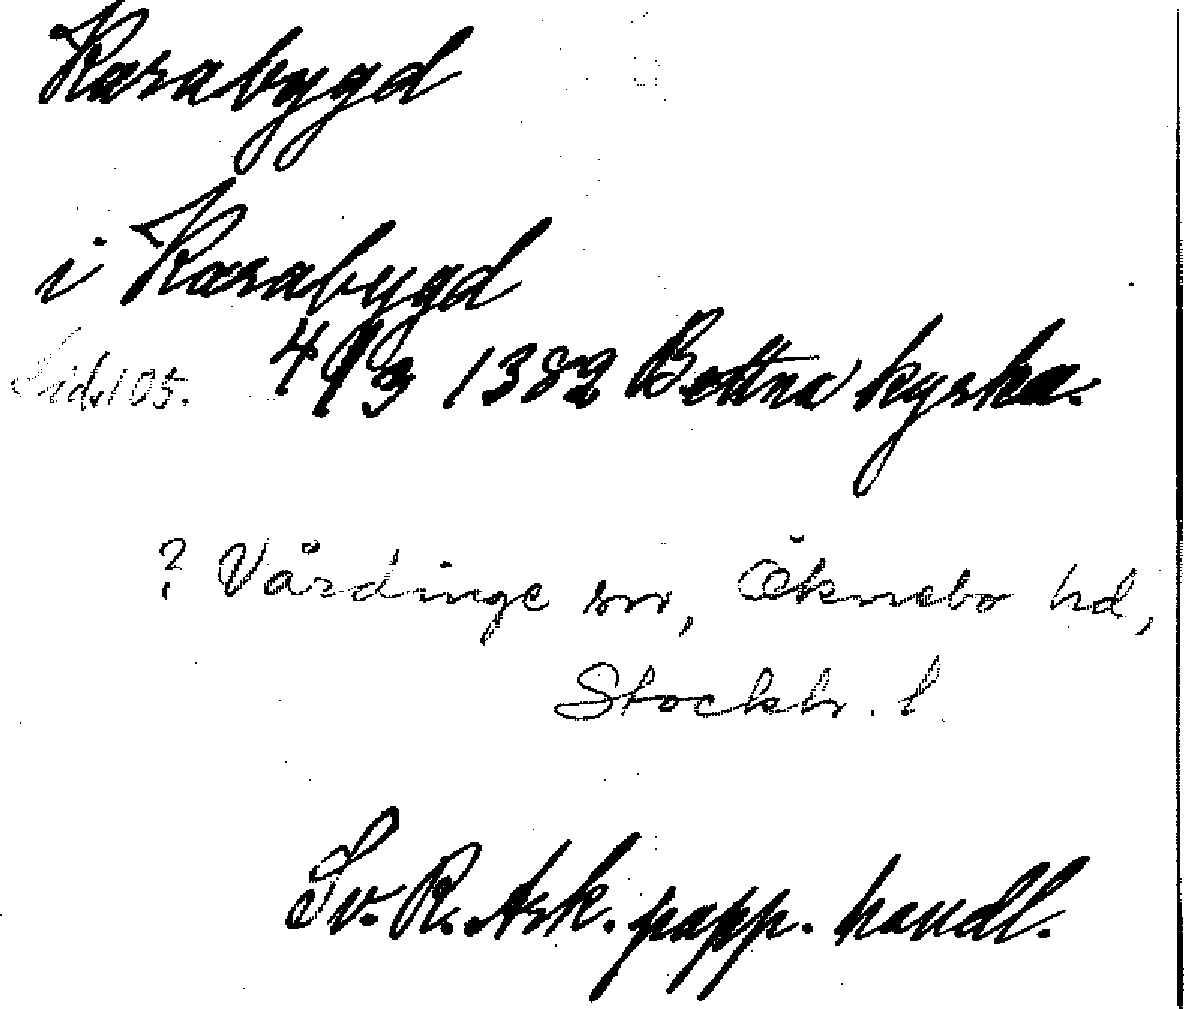 Karabygd
i Karabygd
Sid. 105. 4/3 1382 Bettna kyrka.
? Vårdinge sn, Öknebo hd,
Stockh. l.
Sv. R. Ark. papp. handl.